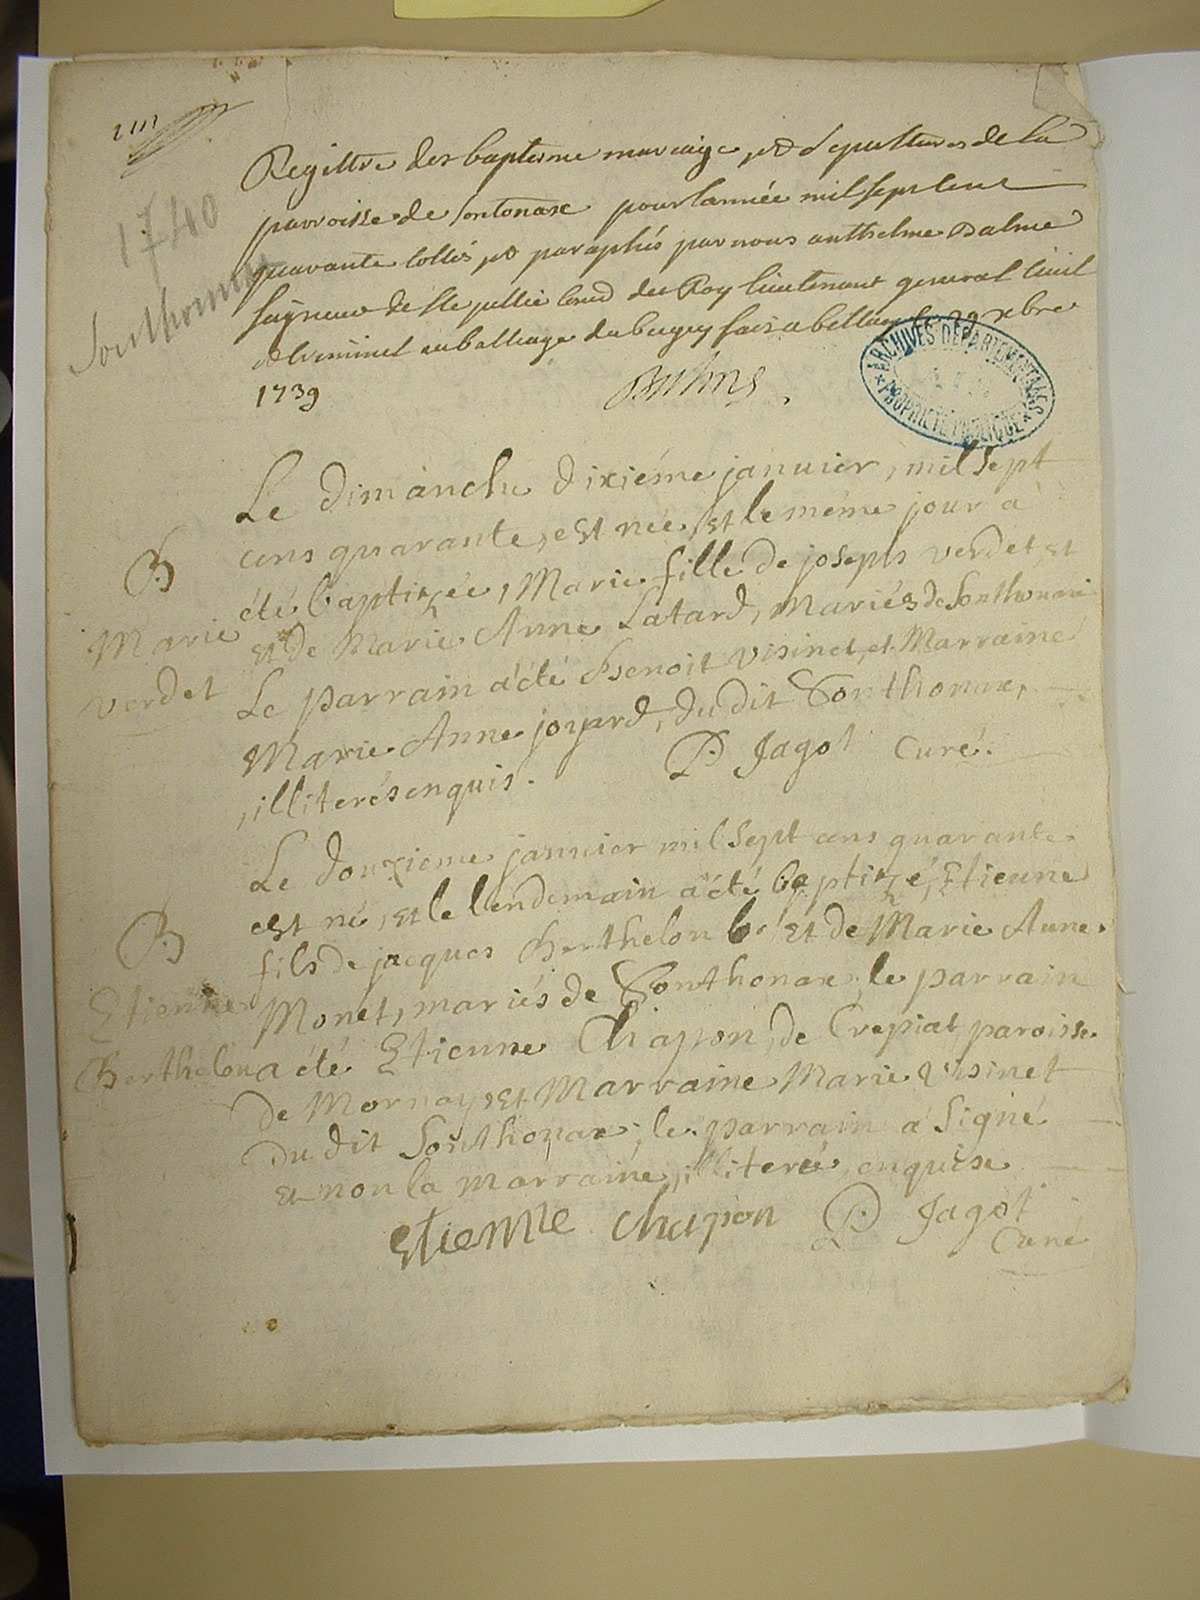 1740
Sonthonnax
Registre des baptesme mariage et sepultures de la
parroisse de sontonax pour lannée mil sept cent
quarante cottés et paraphés par nous anthelme Balme
seigneur de Ste jullie Cons du Roy lieutenant general civil
et criminel au balliage du bugey fait a belley le 29 xbre
1739
Balme
ARCHIVES DEPARTEMENTALES
PROPRIETE PUBLIQUE
Le dimanche dixiéme janvier, mil sept
cens quarante, est née, et le méme jour a
B
été baptizée, Marie fille de joseph verdet, et
Marie
et de Marie Anne Latard, Mariés de Sonthonax
verdet
Le parrain a été Benoit visinet, et Marraine
Marie Anne joyard, du dit Sonthonax,
illiterés enquis.
P. Jagot Curé.
Le douzieme janvier mil sept cens quarante
est né, et le lendemain a été baptizé, Etienne
B
fils de jacques Berthelon et de Marie Anne
Etienne
Monet, mariés de Sonthonax, le parrain
Berthelon
a été Etienne Chapon, de Crepiat paroisse
de Mornay, et Marraine Marie visinet
du dit Sonthonax, le parrain a signé
et non la marraine, illiterée enquise
Etienne chapon P. Jagot
Curé